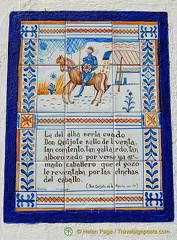 La del alba sería cuando
Don Quijote salió de la venta
tan contento, tan gallardo, tan
alborozado por verse ya ar-
mado caballero que el gozo
le reventaba por las cinchas
del caballo.
(Don Quijote de la Mancha
© Helen Page / TravelSignposts.com